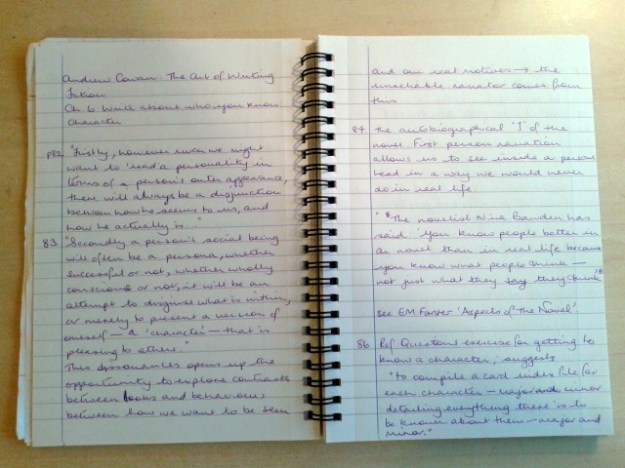 Andrew Cowan: The Art of Writing
Fiction
Ch 6 Write about who you know
Character
p82 "Firstly, however much we might
want to 'read' a personality in
terms of a person's outer appearance,
there will always be a disjunction
between how he seems to us, and
how he actually is."
83. "Secondly a person's social being
will often be a persona, whether
successful or not, whether wholly
conscious or not, it will be an
attempt to disguise what is within,
or merely to present a version of
oneself – a 'character' – that is
pleasing to others."
This dissonances opens up the
opportunity to explore contrasts
between looks and behaviour,
between how we want to be seen
and our real motives → the
unreliable narrator comes from
this
84. The autobiographical 'I' of the
novel First person narration
allows us to see inside a persons
head in a way we would never
do in real life
"The novelist Nina Bawden has
said 'you know people better in
a novel than in real life because
you know what people think –
not just what they say they think'"
See EM Forster 'Aspects of The Novel'.
86. Ref Questions exercise for getting to
know a character, suggests
"to compile a card index file for
each character – major and minor
detailing everything there is to
be known about them – major and
minor."